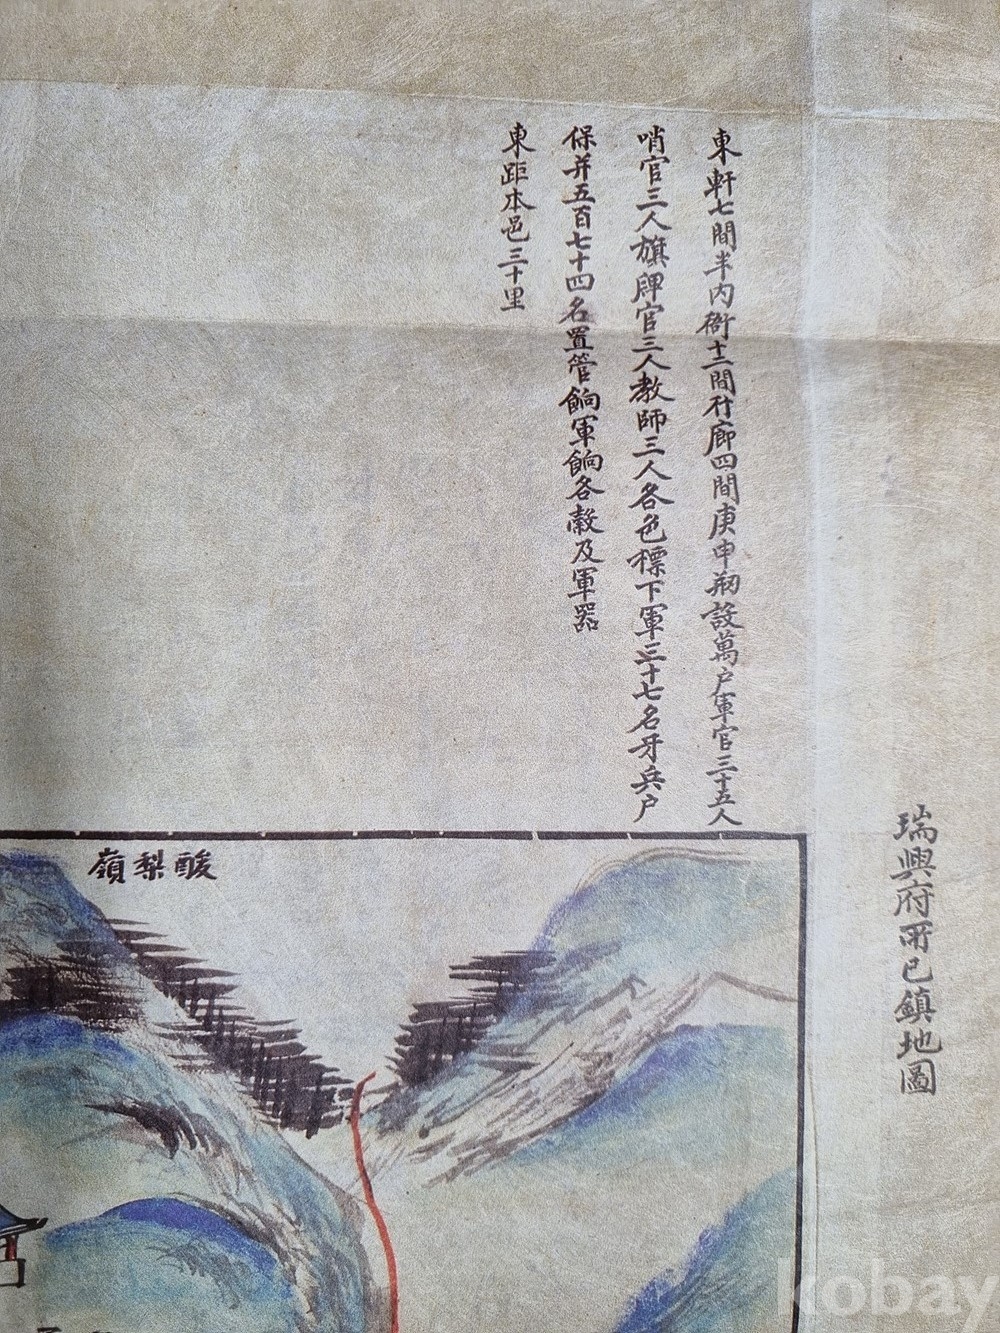 瑞興府所已鎮地圖
東軒七間半內衙十二間行廊四間庚申刱設萬户軍官三十五人
哨官三人旗牌官三人教師三人各色標下軍三十七名牙兵户
保并五百七十四名置管餉軍餉各穀及軍器
東距本邑三十里
酸梨嶺
kobay